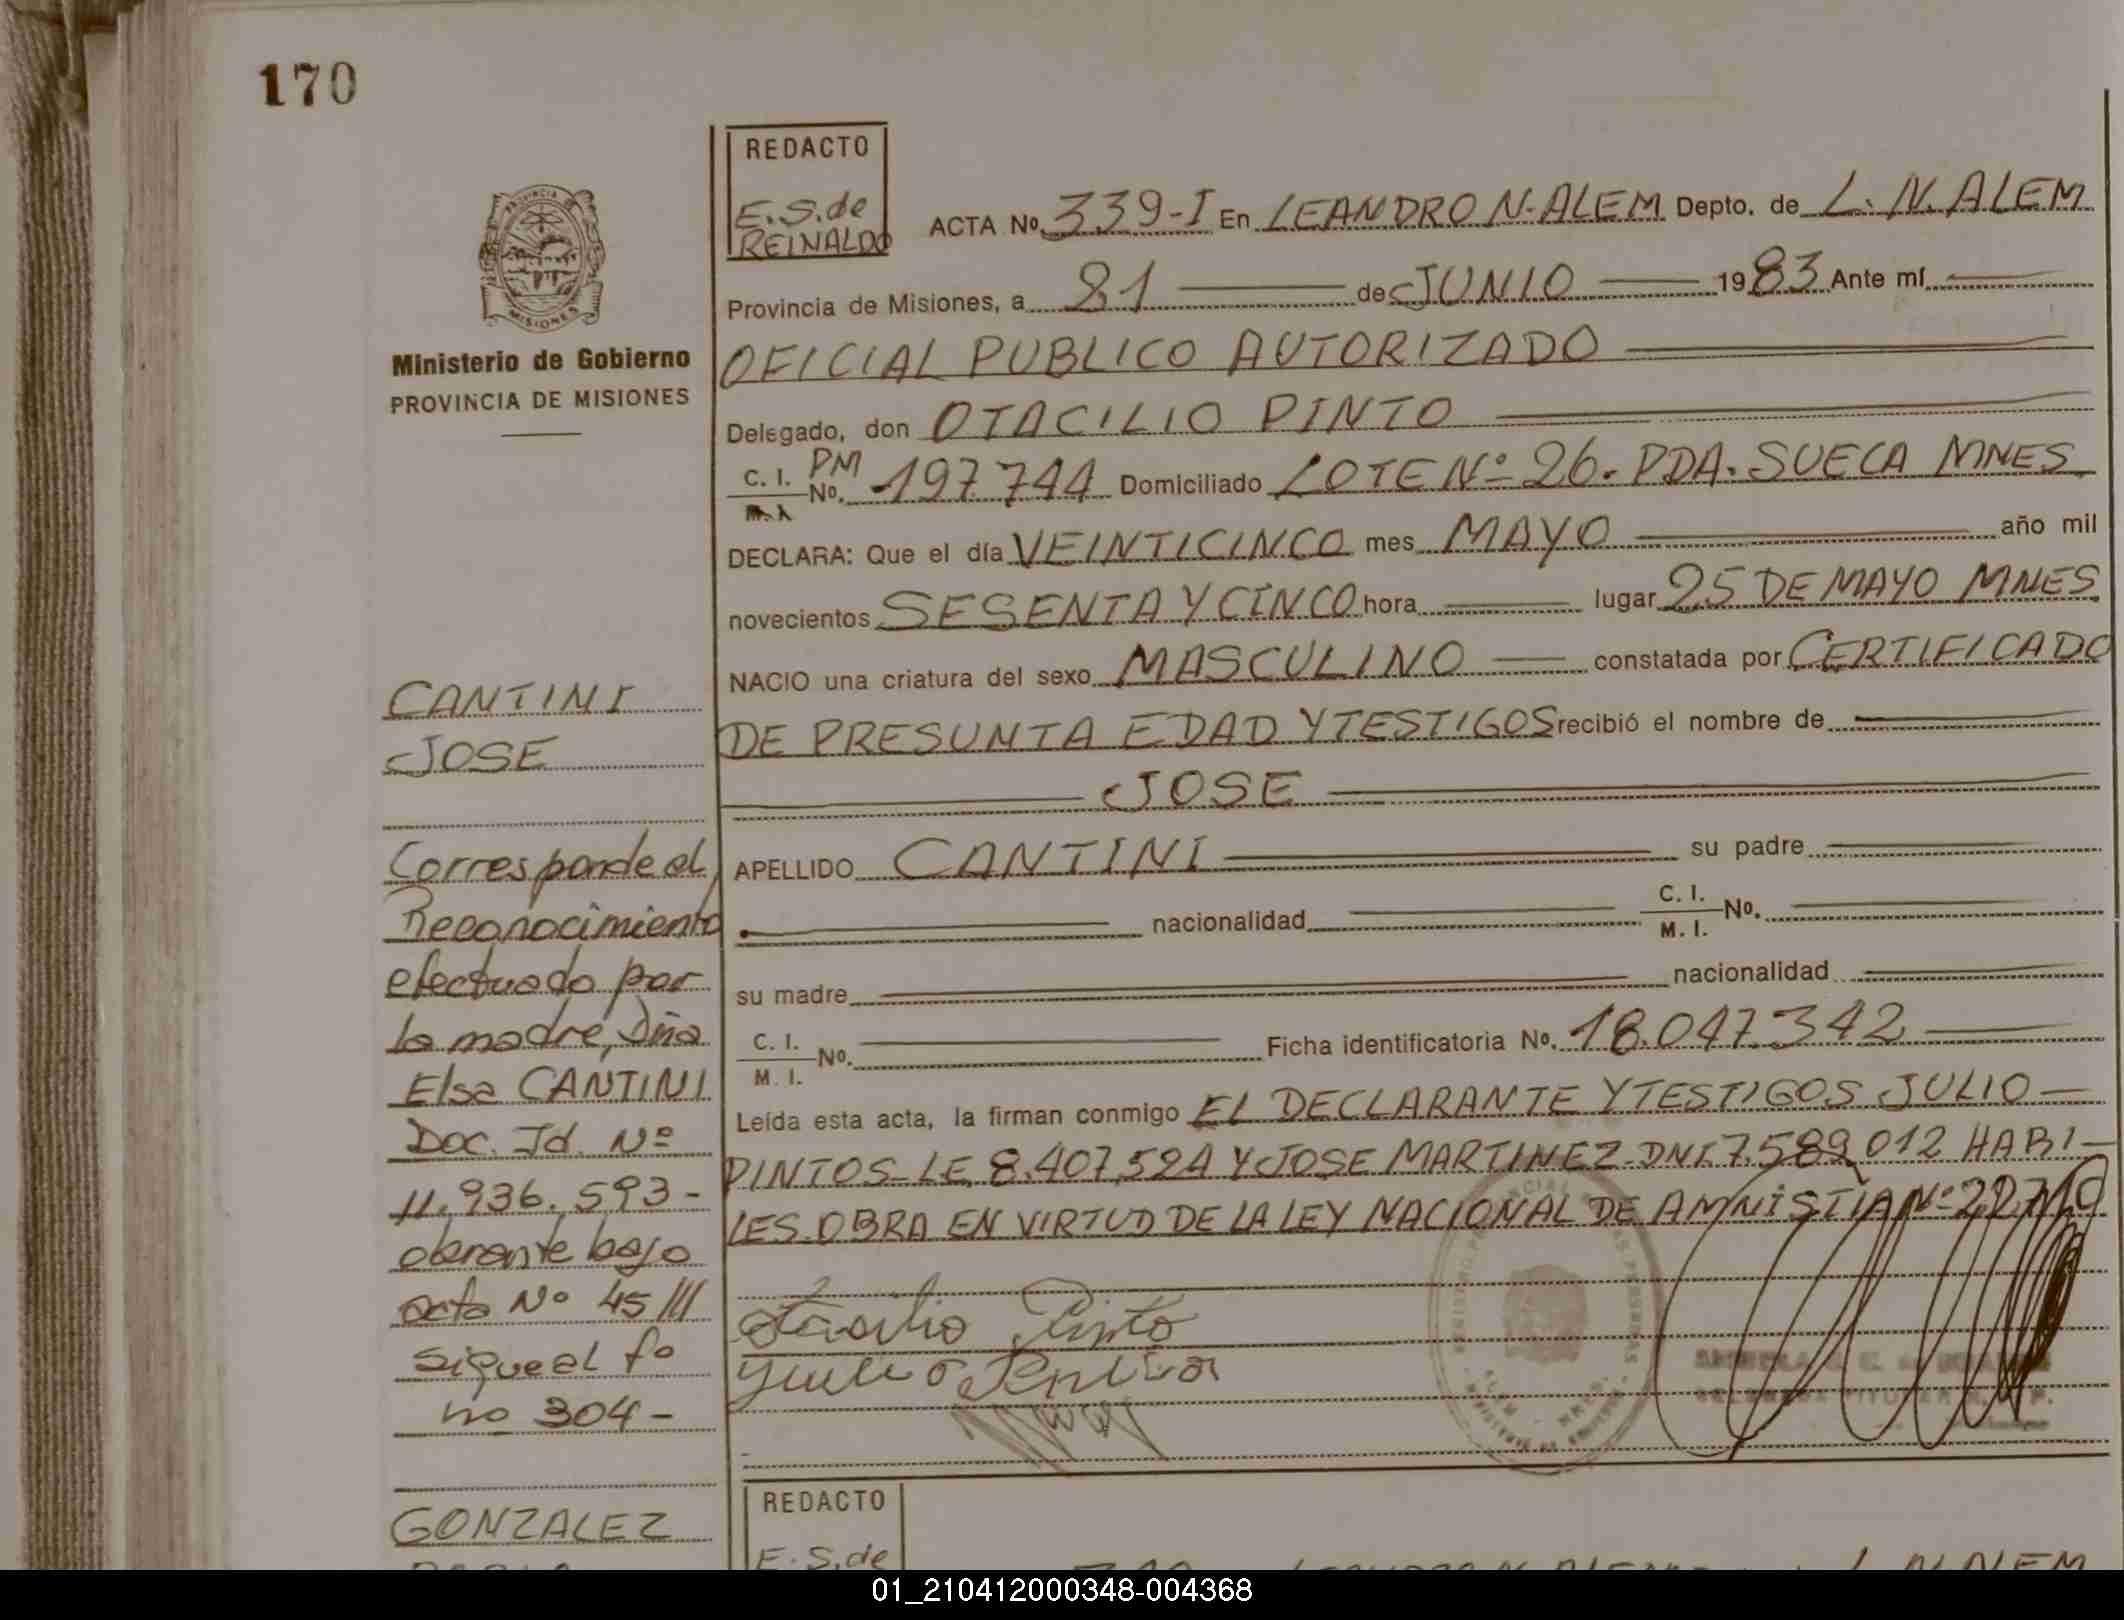 170
REDACTO
E.S.de
REINALDO
ACTA No. 339-I En LEANDRO N. ALEM Depto. de L. N. ALEM
Provincia de Misiones, a 21 de JUNIO 1983 Ante mí
OFICIAL PUBLICO AUTORIZADO
Delegado, don OTACILIO PINTO
C. I. PM No. 197.744 Domiciliado LOTE Nº 26. PDA. SUECA MNES.
DECLARA: Que el día VEINTICINCO mes MAYO año mil
novecientos SESENTA Y CINCO hora lugar 25 DE MAYO MNES.
NACIO una criatura del sexo MASCULINO constatada por CERTIFICADO
DE PRESUNTA EDAD Y TESTIGOS recibió el nombre de
JOSE
APELLIDO CANTINI su padre
nacionalidad C. I. M. I. No.
su madre nacionalidad
C. I. M. I. No. Ficha identificatoria No. 18.047.342
Leída esta acta, la firman conmigo EL DECLARANTE Y TESTIGOS JULIO
PINTOS LE. 8.407.524 Y JOSE MARTINEZ DNI. 7.589.012 HABI-
LES. OBRA EN VIRTUD DE LA LEY NACIONAL DE AMNISTIA Nº 22710
Otacilio Pinto
PROVINCIA
MISIONES
Ministerio de Gobierno
PROVINCIA DE MISIONES
CANTINI
JOSE
Corresponde al
Reconocimiento
efectuado por
la madre, Dña
Elsa CANTINI
Doc. Id. Nº
11.936.593-
obrante bajo
acta Nº 45/III
sigue al fo
no 304-
GONZALEZ
REDACTO
E.S.de
01_210412000348-004368